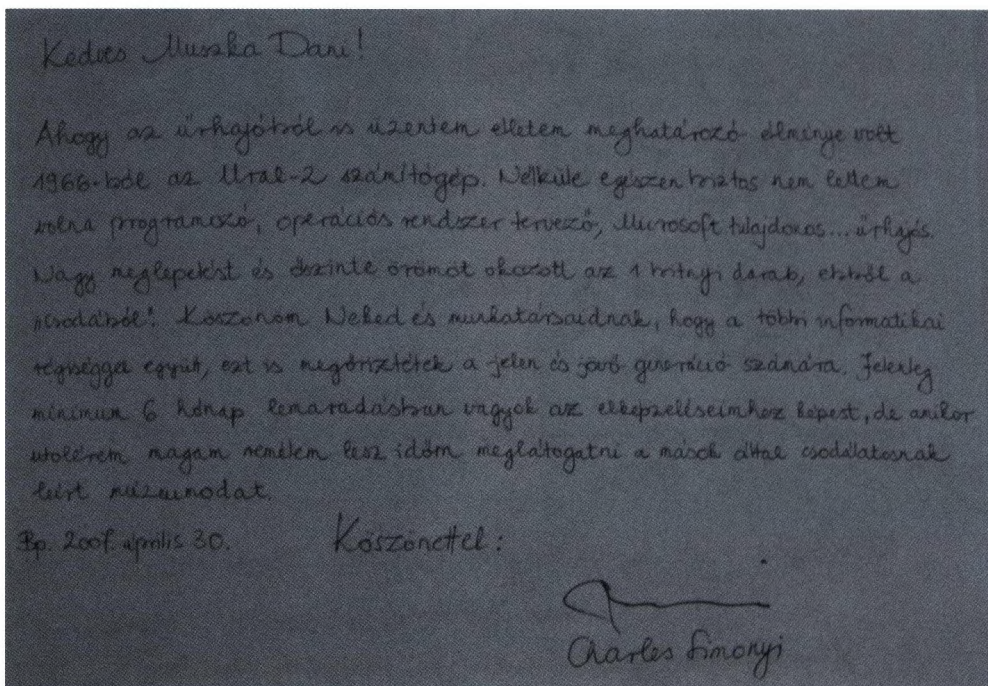 Kedves Muszka Dani!
Ahogy az űrhajóról is üzentem életem meghatározó élménye volt
1966-ból az Ural-2 számítógép. Nélküle egészen biztos nem lettem
volna programozó, operációs rendszer tervező, Microsoft tulajdonos... űrhajós.
Nagy meglepetést és őszinte örömöt okozott az 1 bitnyi darab, ebből a
csodából! Köszönöm Neked és munkatársaidnak, hogy a többi informatikai
régiséggel együtt, ezt is megőriztétek a jelen és jövő generáció számára. Jelenleg
minimum 6 hónap lemaradásban vagyok az elképzeléseimhez képest, de amikor
utolérem magam remélem lesz időm meglátogatni a mások által csodálatosnak
leírt múzeumodat.
Bp. április 30. Köszönettel:
Charles Simonyi